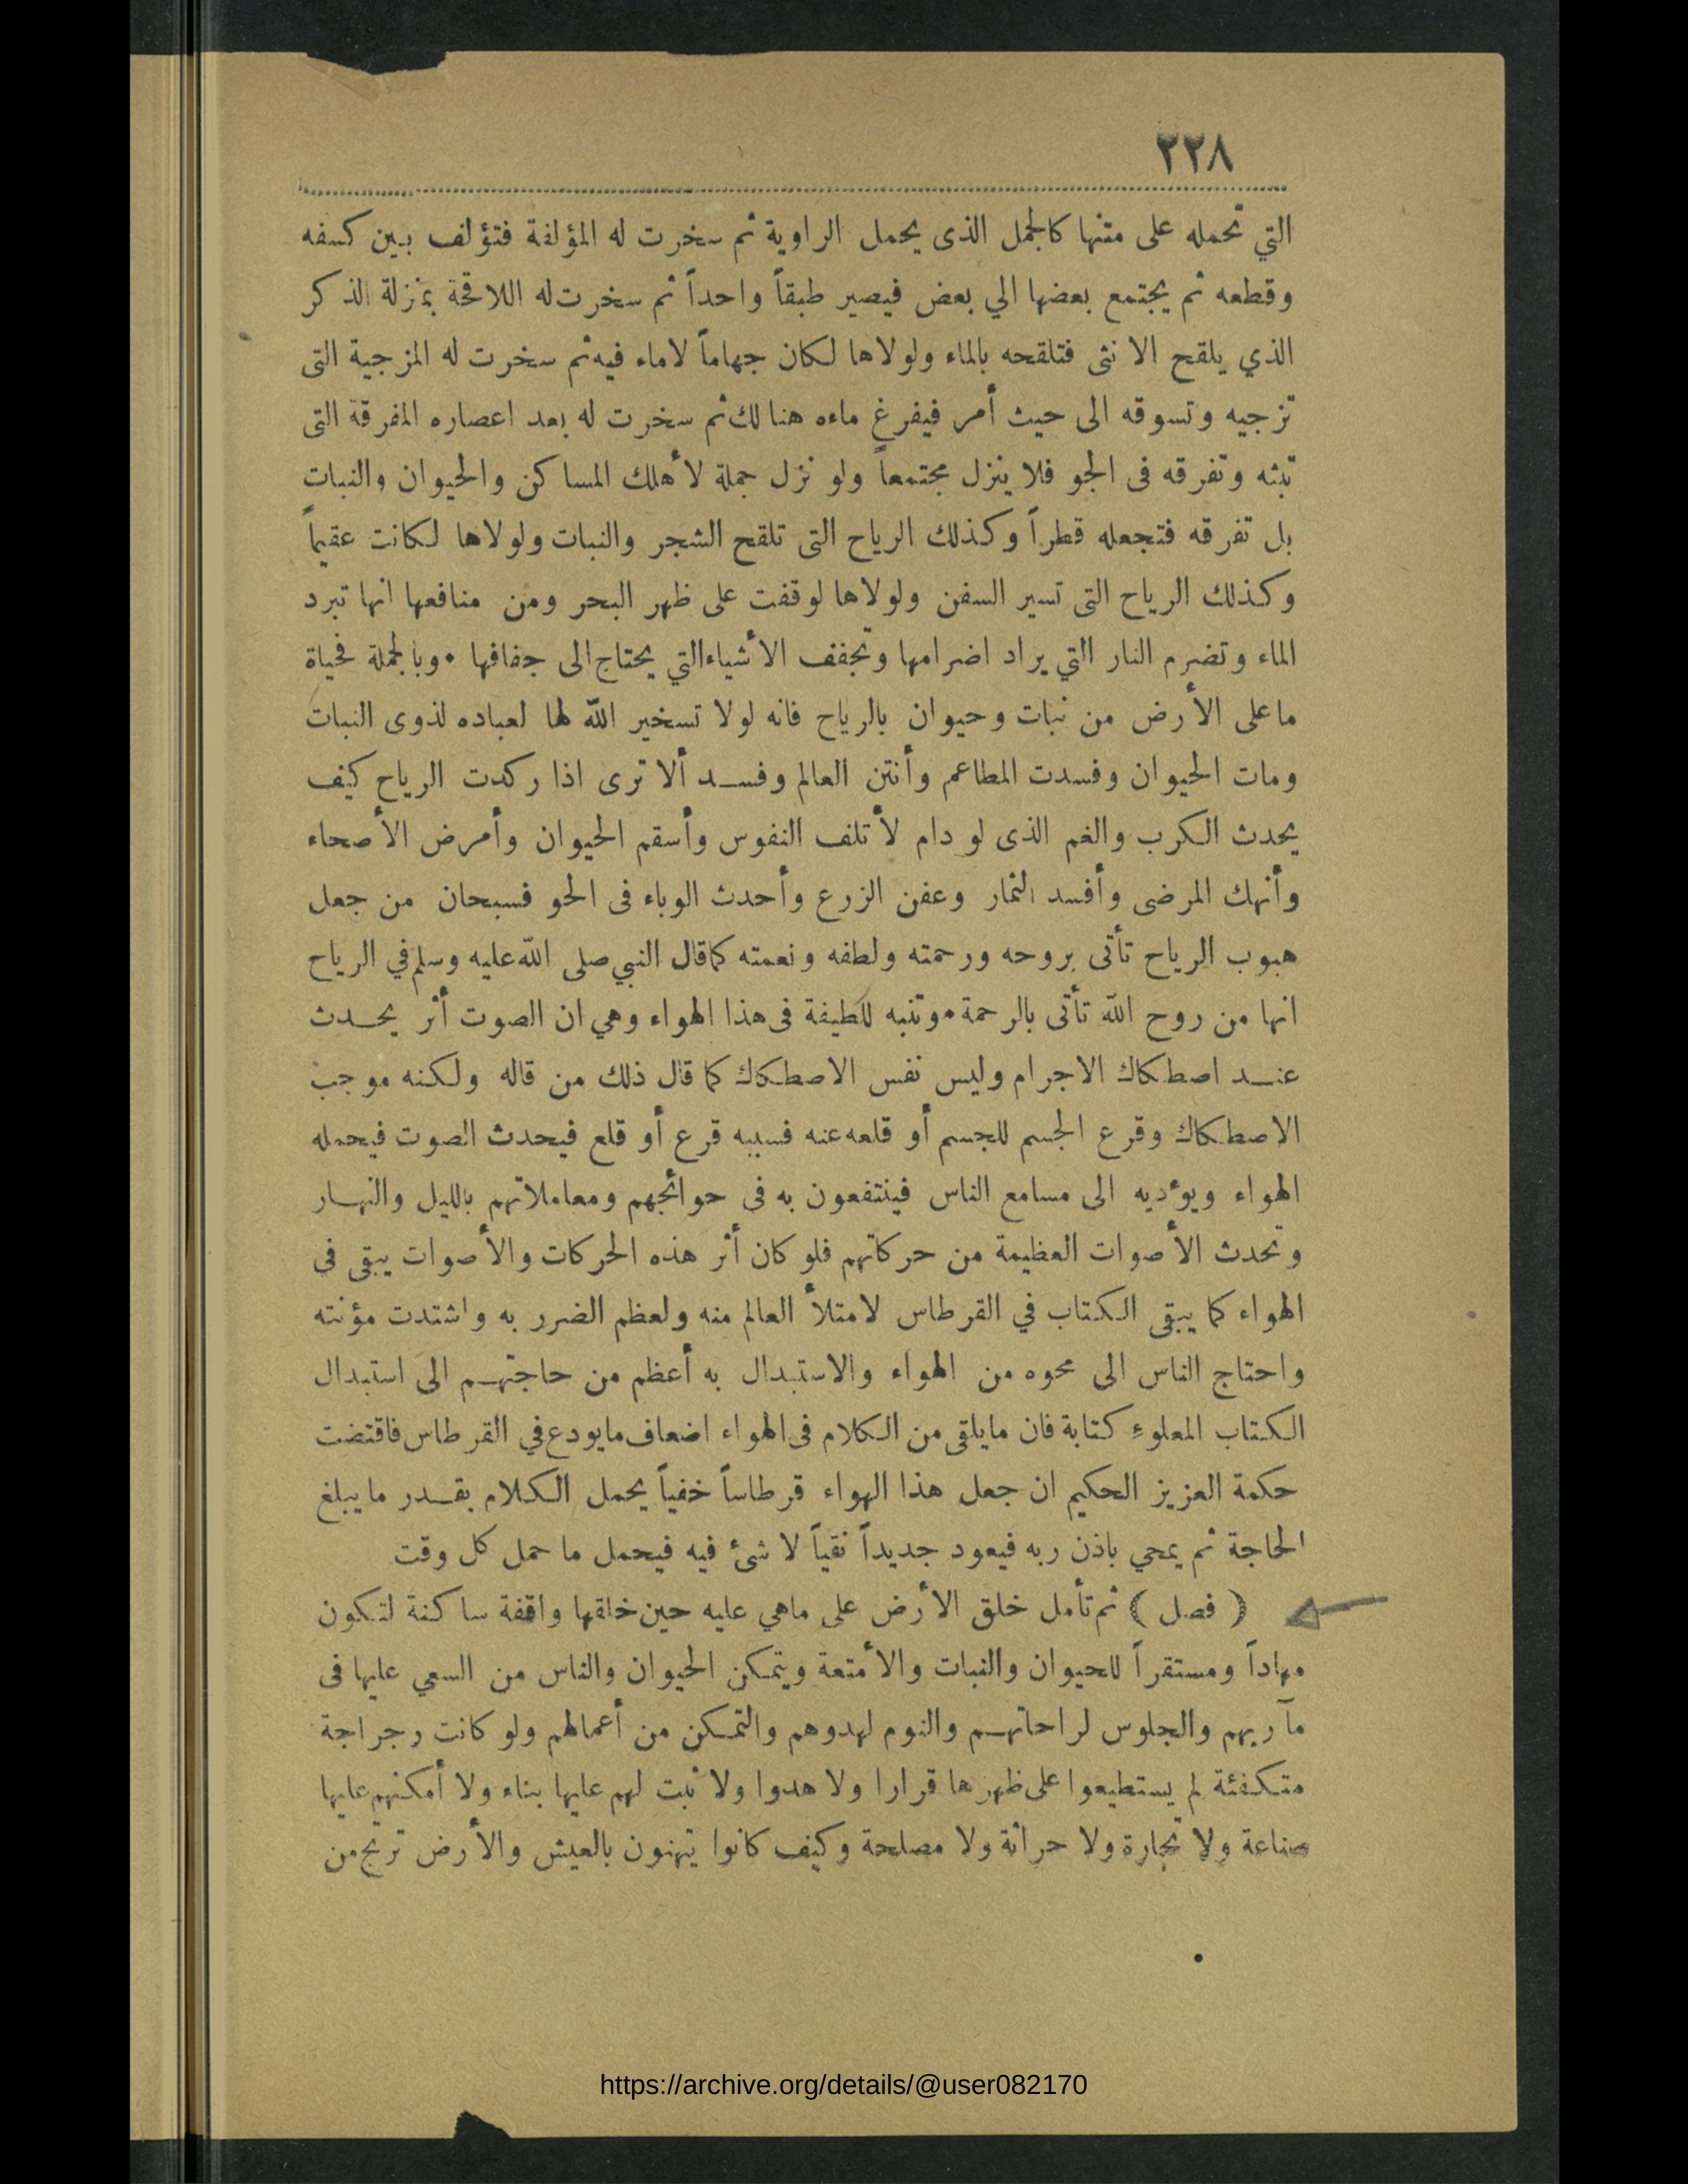 ٢٢٨
التي تحمله على متنها كالجمل الذى يحمل الراوية ثم سخرت له المؤلفة فتؤلف بين كسفه
وقطعه ثم يجتمع بعضها الي بعض فيصير طبقاً واحداً ثم سخرت له اللاقحة بمنزلة الذكر
الذي يلقح الانثى فتلقحه بالماء ولولاها لكان جهاماً لاماء فيه ثم سخرت له المزجية التى
تزجيه وتسوقه الى حيث أمر فيفرغ ماءه هنالك ثم سخرت له بعد اعصاره المفرقة التى
تبثه وتفرقه فى الجو فلا ينزل مجتمعاً ولو نزل جملة لأهلك المساكن والحيوان والنبات
بل تفرقه فتجعله قطراً وكذلك الرياح التى تلقح الشجر والنبات ولولاها لكانت عقيماً
وكذلك الرياح التى تسير السفن ولولاها لوقفت على ظهر البحر ومن منافعها انها تبرد
الماء وتضرم النار التي يراد اضرامها وتجفف الأشياء التي يحتاج الى جفافها • وبالجملة فحياة
ماعلى الأرض من نبات وحيوان بالرياح فانه لولا تسخير الله لها لعباده لذوى النبات
ومات الحيوان وفسدت المطاعم وأنتن العالم وفسد ألا ترى اذا ركدت الرياح كيف
يحدث الكرب والغم الذى لو دام لأتلف النفوس وأسقم الحيوان وأمرض الأصحاء
وأنهك المرضى وأفسد الثمار وعفن الزرع وأحدث الوباء فى الحو فسبحان من جعل
هبوب الرياح تأتى بروحه ورحمته ولطفه ونعمته كما قال النبي صلى الله عليه وسلم في الرياح
انها من روح الله تأتى بالرحمة • وتنبه للطيفة فى هذا الهواء وهي ان الصوت أثر يحدث
عند اصطكاك الاجرام وليس نفس الاصطكاك كما قال ذلك من قاله ولكنه موجب
الاصطكاك وقرع الجسم للجسم أو قلعه عنه فسببه قرع أو قلع فيحدث الصوت فيحمله
الهواء ويوءديه الى مسامع الناس فينتفعون به فى حوائجهم ومعاملاتهم بالليل والنهار
وتحدث الأصوات العظيمة من حركاتهم فلو كان أثر هذه الحركات والأصوات يبقى في
الهواء كما يبقى الكتاب في القرطاس لامتلأ العالم منه ولعظم الضرر به واشتدت مؤنته
واحتاج الناس الى محوه من الهواء والاستبدال به أعظم من حاجتهم الى استبدال
الكتاب المعلوء كتابة فان مايلقى من الكلام فى الهواء اضعاف مايودع في القرطاس فاقتضت
حكمة العزيز الحكيم ان جعل هذا الهواء قرطاساً خفياً يحمل الكلام بقدر ما يبلغ
الحاجة ثم يمحي باذن ربه فيعود جديداً نقياً لا شئ فيه فيحمل ما حمل كل وقت
( فصل ) ثم تأمل خلق الأرض على ماهي عليه حين خلقها واقفة ساكنة لتكون
مهاداً ومستقراً للحيوان والنبات والأمتعة ويتمكن الحيوان والناس من السعي عليها فى
مآربهم والجلوس لراحاتهم والنوم لهدوهم والتمكن من أعمالهم ولو كانت رجراجة
متكفئة لم يستطيعوا على ظهرها قرارا ولا هدوا ولا ثبت لهم عليها بناء ولا أمكنهم عليها
صناعة ولا تجارة ولا حراثة ولا مصلحة وكيف كانوا يتهنون بالعيش والأرض ترتج من
https://archive.org/details/@user082170